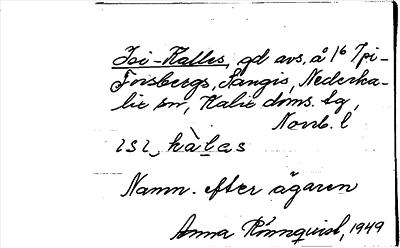 Isi-Kalles, gd avs. å 1/6 7 pi-
Forsbergs, Sangis, Nederka-
lix sn, Kalix doms. lg,
Norrb. l
ɩsɩ, kàlas
Namn. efter ägaren
Anna Rönnqvist, 1949